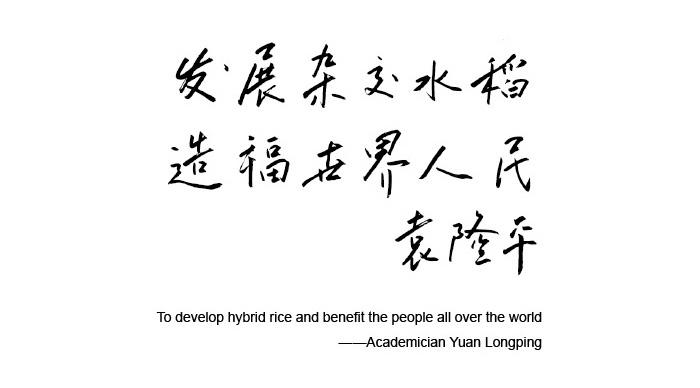 发展杂交水稻
造福世界人民
袁隆平
To develop hybrid rice and benefit the people all over the world
——Academician Yuan Longping